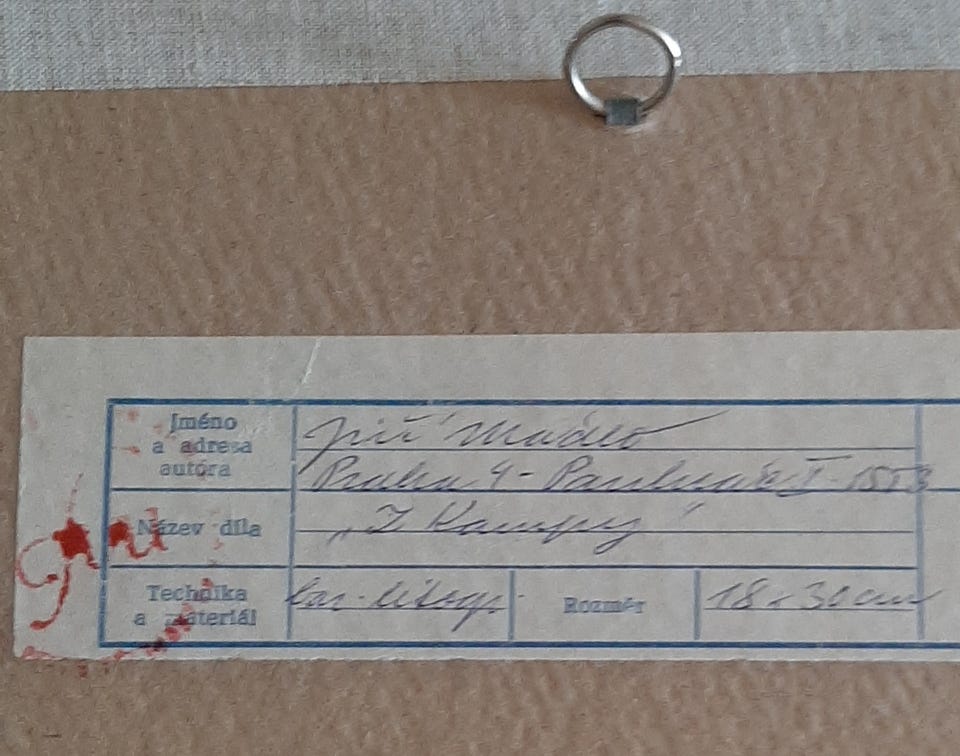 Jméno
a adresa
autóra
Jiří Mádlo
Praha 4 - 1553
Název díla
„Z Kampy"
Technika
a materiál
bar. litogr.
Rozměr
18 x 30 cm